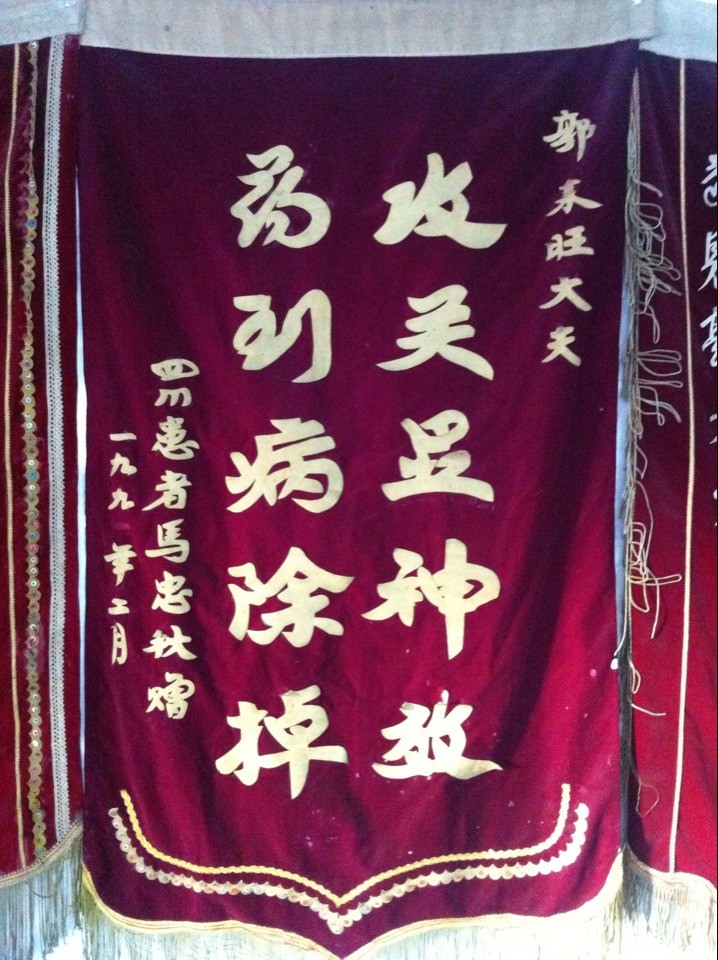 郭来旺大夫
攻关显神效
药到病除掉
四川患者馬忠秋赠
一九九一年二月